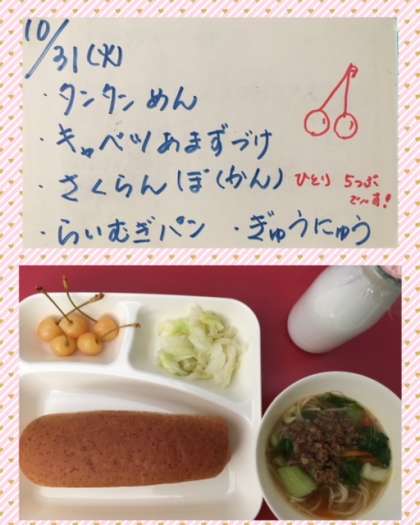 10/31(火)
・タンタンめん
・キャベツあまずづけ
・さくらんぼ(かん)
ひとり 5つぶ
で〜す!
・らいむぎパン ・ぎゅうにゅう